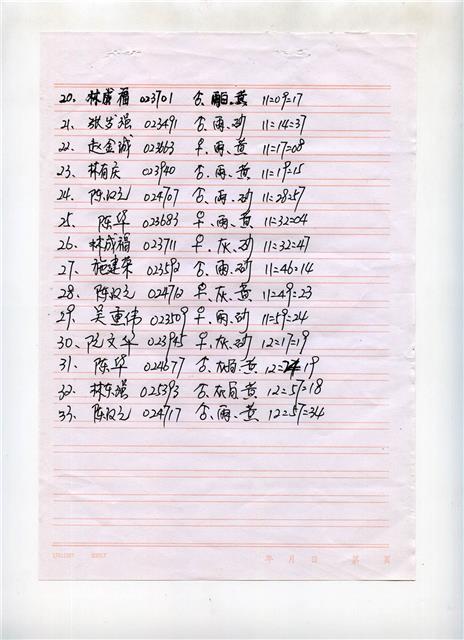 20、林成福 023701 合、雨白、黄 11=09=17
21、张 强 023491 合、雨、 11=14=37
22、赵金诚 023663 早、雨、黄 11=17=08
23、林有庆 023940 合、雨、黄 11=19=15
24、陈汉元 024707 合、雨、 11=28=57
25、陈华 023683 早、雨、黄 11=32=04
26、林成福 023711 早、灰、 11=32=47
27、施建荣 023592 合、雨、 11=46=14
28、陈汉元 024712 早、灰、黄 11=49=23
29、吴重伟 023509 早、雨、 11=59=24
30、 文华 023945 早、灰、 12=17=19
31、陈华 024677 合、灰白、黄 12= 19
32、林东强 025393 合、灰白、黄 12=57=18
33、陈汉元 024717 合、雨、黄 12=57=34
年 月 日 第 页